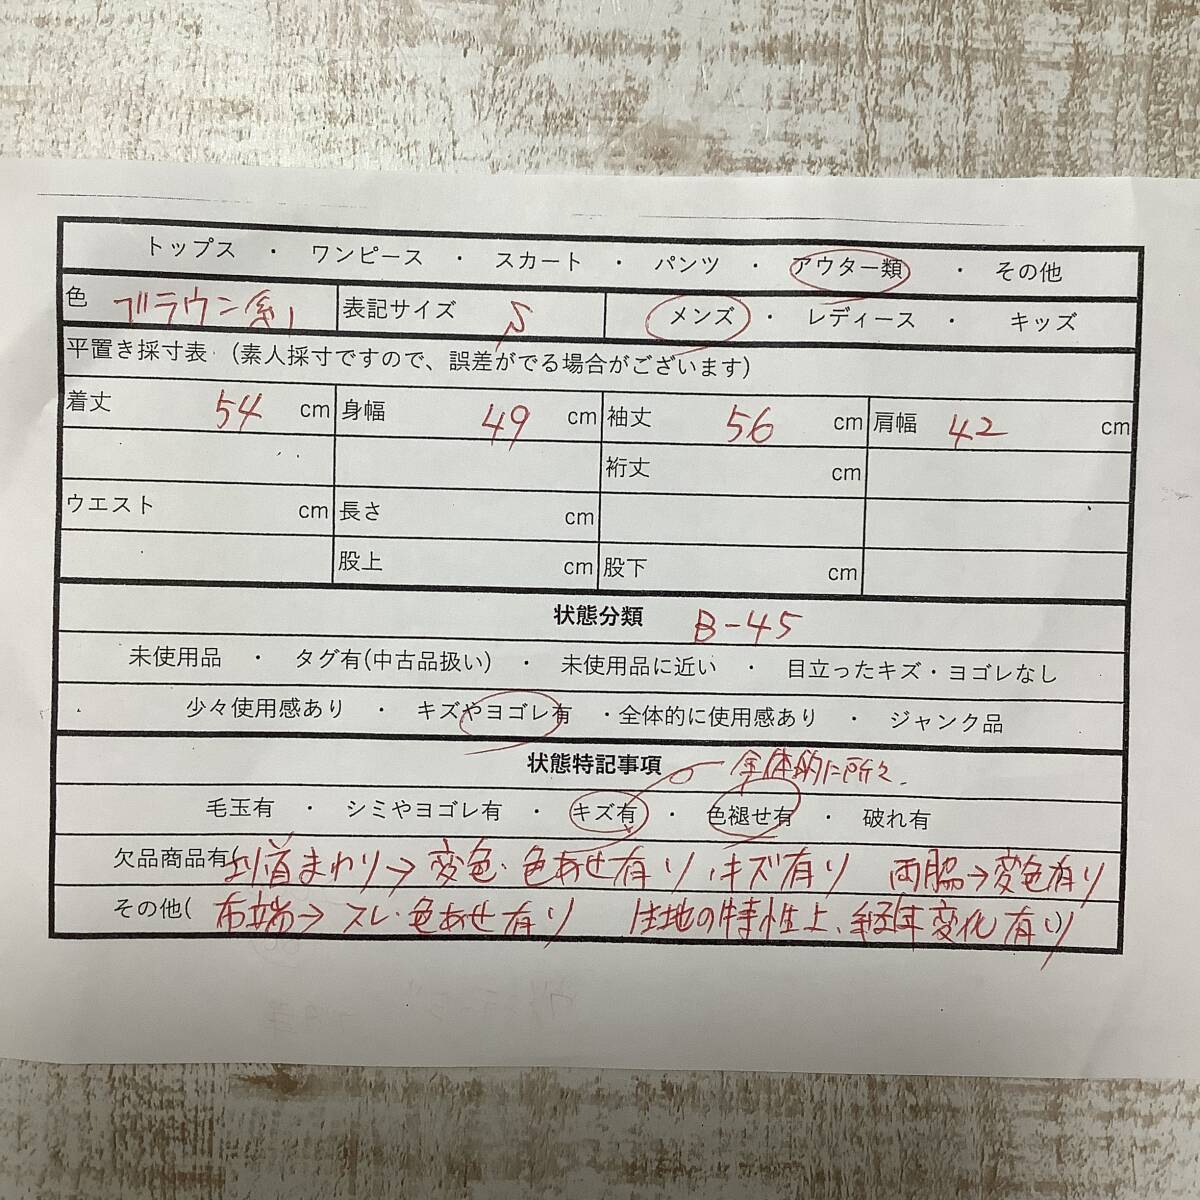 トップス ・ ワンピース ・ スカート ・ パンツ ・ アウター類 ・ その他
色 ブラウン系 表記サイズ S メンズ ・ レディース ・ キッズ
平置き採寸表 (素人採寸ですので、誤差がでる場合がございます)
着丈 54 cm 身幅 49 cm 袖丈 56 cm 肩幅 42 cm
裄丈 cm
ウエスト cm 長さ cm
股上 cm 股下 cm
状態分類 B-45
未使用品 ・ タグ有(中古品扱い) ・ 未使用品に近い ・ 目立ったキズ・ヨゴレなし
少々使用感あり ・ キズやヨゴレ有 ・全体的に使用感あり ・ ジャンク品
状態特記事項 全体的に所々
毛玉有 ・ シミやヨゴレ有 ・ キズ有 ・ 色褪せ有 ・ 破れ有
欠品商品有( 首まわり→変色・色あせ有り・キズ有り 両脇→変色有り
その他( 布端→スレ・色あせ有り 生地の特性上、経年変化有り)